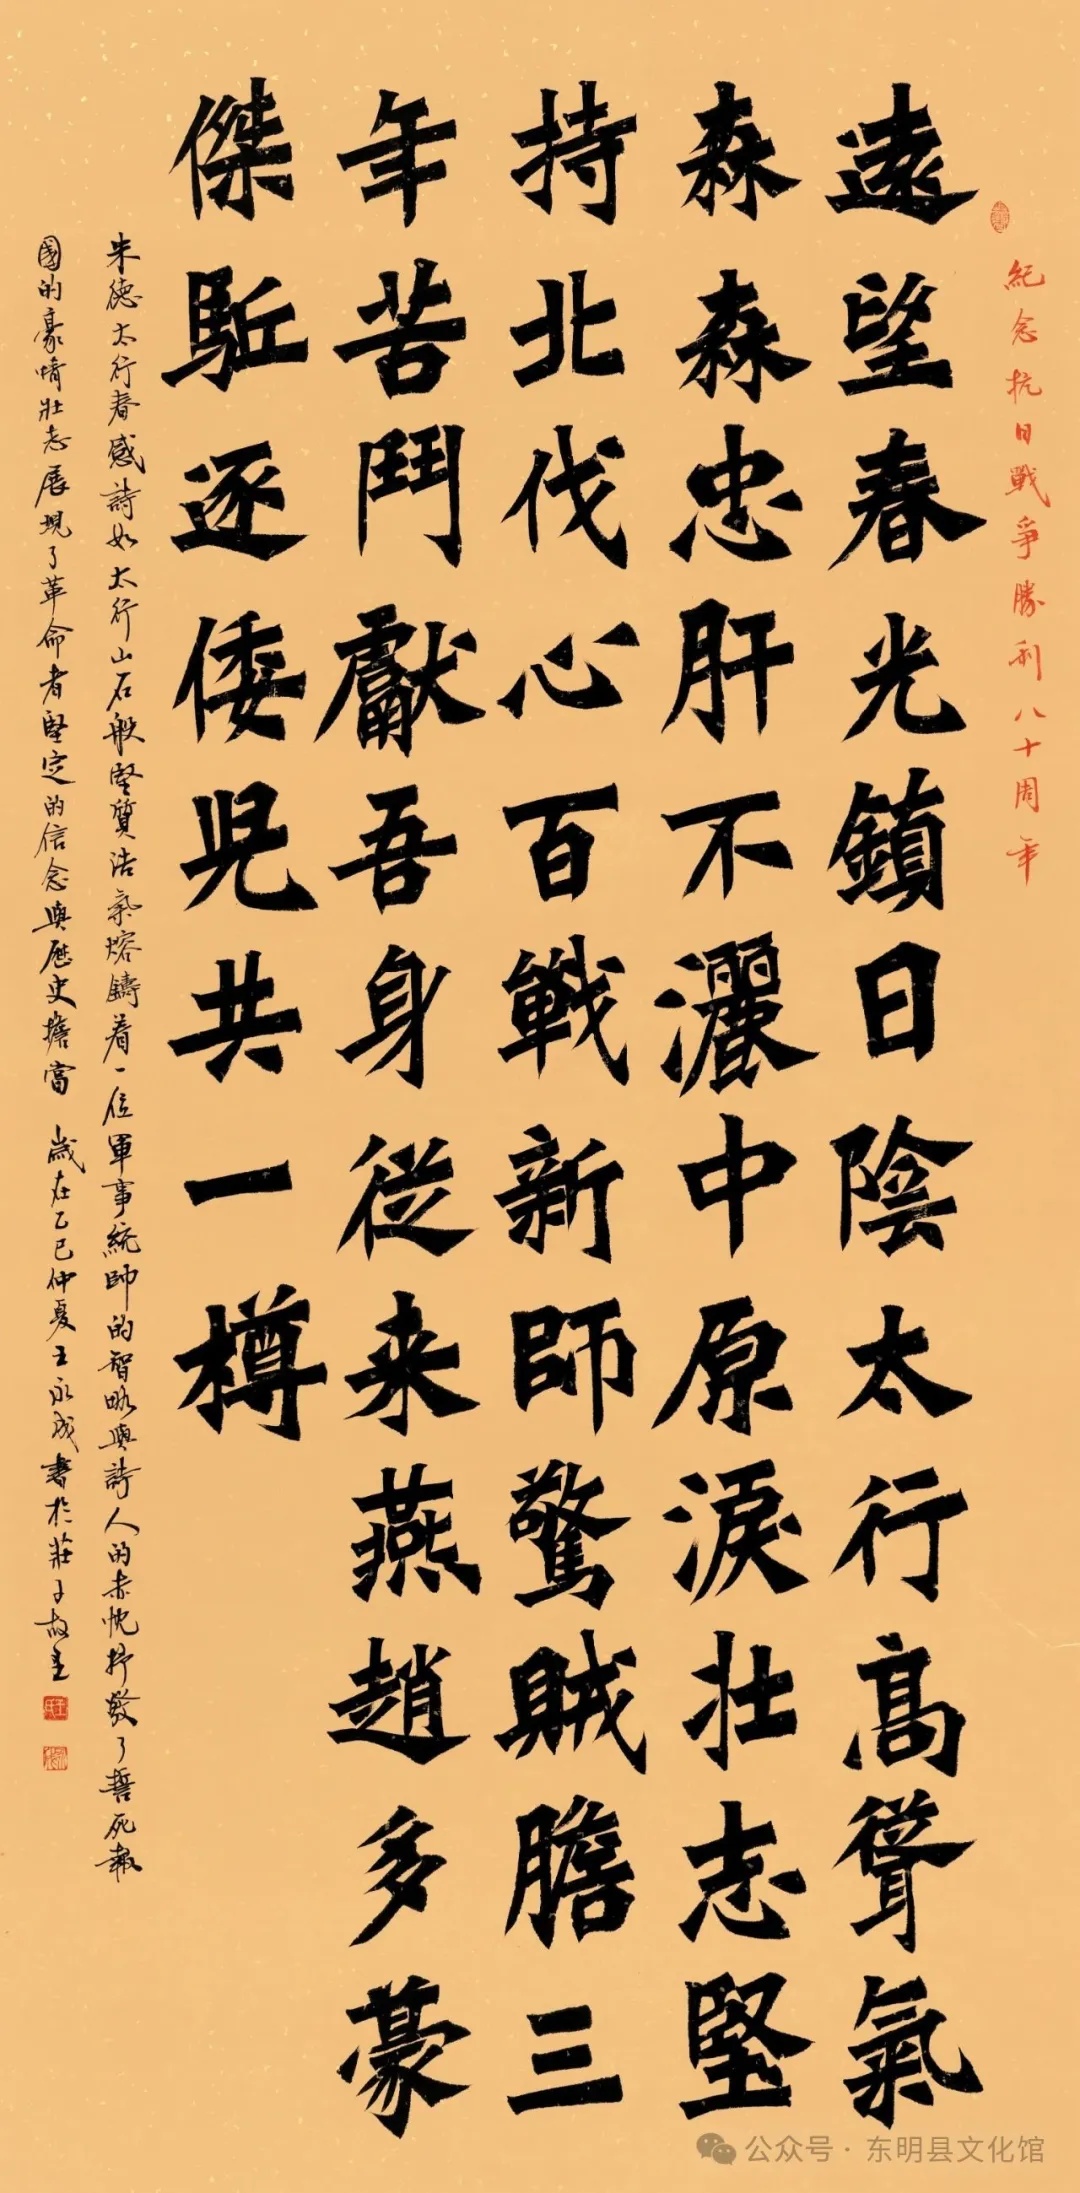 紀念抗日戰爭勝利八十周年
遠望春光鎮日陰太行高聳氣
森森忠肝不灑中原淚壯志堅
持北伐心百戰新師驚賊膽三
年苦鬥獻吾身從来燕趙多豪
傑駈逐倭児共一樽
朱德太行春感詩如太行山石般堅質浩氣熔鑄着一位軍事統帥的智略與詩人的赤忱抒發了誓死報
國的豪情壯志展現了革命者堅定的信念與歷史擔當 歲在乙巳仲夏王永成書於莊子故里
公众号·东明县文化馆